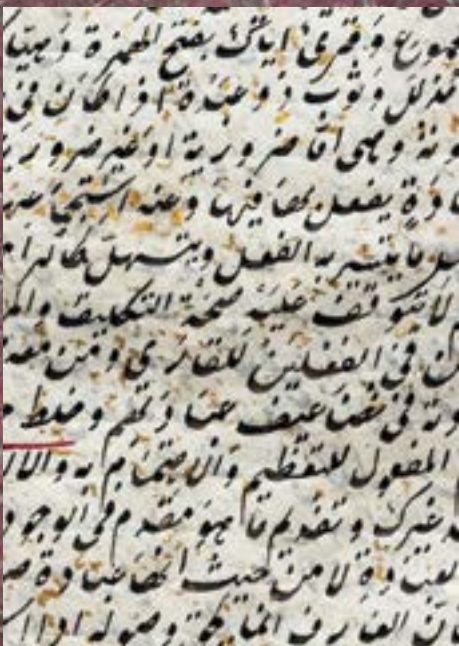 وقرئ اياك بفتح الهمزة وهياك
مذلل وثوب ذو عبدة اذا كان في
ونة وهي اما ضرورية او غير ضرورية
ومادة يفعل بها فيها وعند استجما
ما يتيسر به الفعل ويتسهل كالرا
لا يتوقف عليه صحة التكليف والم
كن في الفعلين للقارئ ومن معه
دته في تضاعيف عبادتهم وخلط
المفعول للتعظيم والاهتمام به والدلا
غيرك وتقديم ما هو مقدم في الوجود
لعبادة لا من حيث انها عبادة صد
فان العارف انما يحق وصوله اذا ا